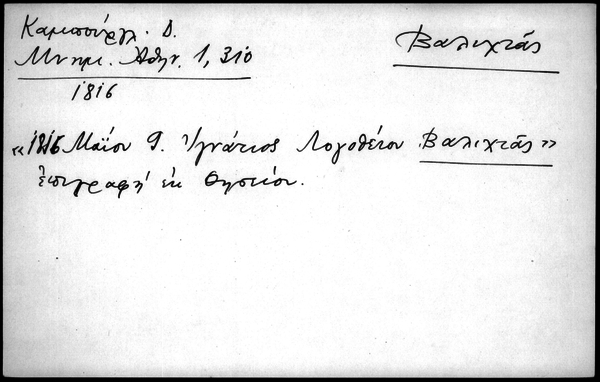 Καμπούργλ. Δ.
Μνημ. Ἀθην. 1, 310
1816
Βαλιχτᾶς
«1816 Μαΐου 9. Ἰγνάτιος Λογοθέτου Βαλιχτᾶς»
ἐπιγραφὴ ἐκ Θησείου.